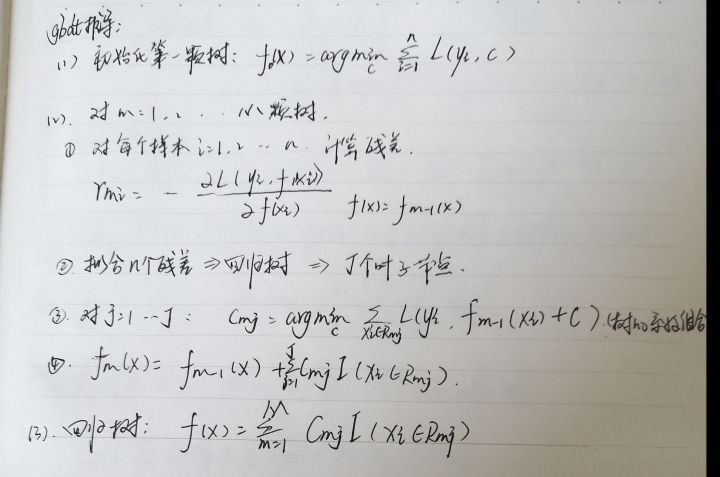 gbdt推导:
(1) 初始化第一颗树: f₀(x) = argmin_c Σ_{i=1}^{n} L(yi, c)
(2). 对 m=1, 2 . . . M 颗树.
① 对每个样本 i=1, 2 ... n 计算残差.
rmi = - ∂L(yi, f(xi)) / ∂f(xi) f(x) = fm-1(x)
② 拟合n个残差 ⇒ 回归树 ⇒ J个叶子节点.
③. 对 j=1 ... J : Cmj = argmin_c Σ_{xi∈Rmj} L(yi, fm-1(xi)+c). 树的系数组合
④. fm(x) = fm-1(x) + Σ_{j=1}^{J} Cmj I (xi ∈ Rmj).
(3). 回归树: f(x) = Σ_{m=1}^{M} Cmj I (xi ∈ Rmj)